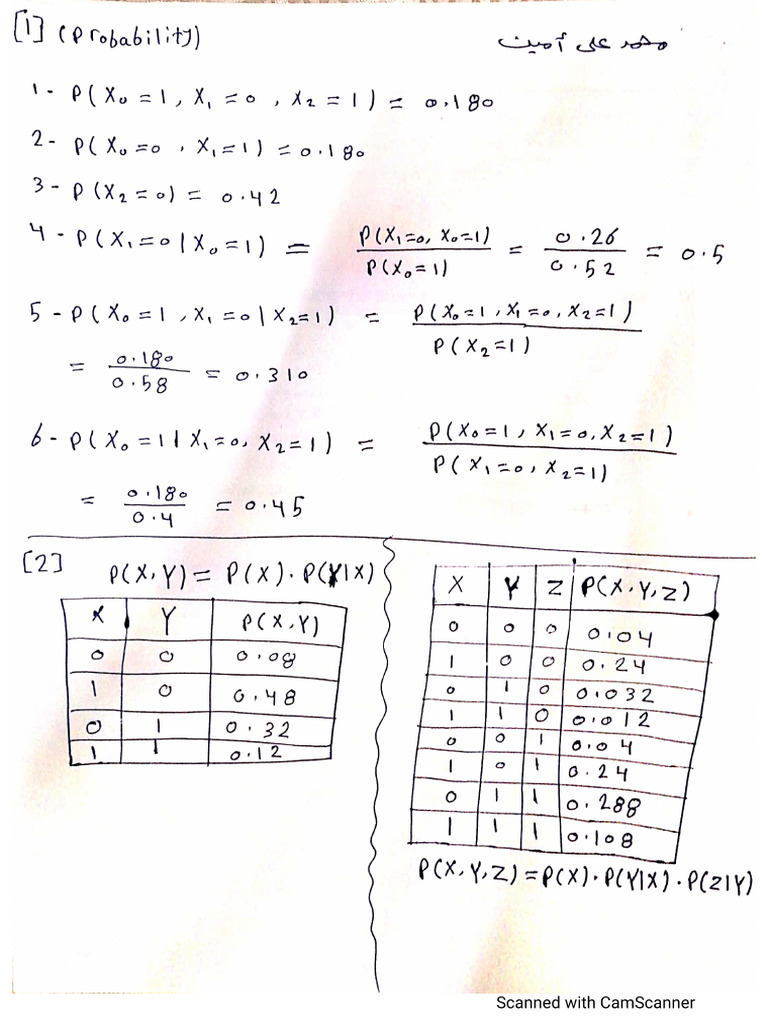 [1] (Probability)
محمد علي أمين
1- P(X₀ = 1, X₁ = 0, X₂ = 1) = 0.180
2- P(X₀ = 0, X₁ = 1) = 0.180
3- P(X₂ = 0) = 0.42
4- P(X₁ = 0 | X₀ = 1) = P(X₁=0, X₀=1) / P(X₀=1) = 0.26 / 0.52 = 0.5
5- P(X₀ = 1, X₁ = 0 | X₂ = 1) = P(X₀=1, X₁=0, X₂=1) / P(X₂=1)
= 0.180 / 0.58 = 0.310
6- P(X₀ = 1 | X₁ = 0, X₂ = 1) = P(X₀=1, X₁=0, X₂=1) / P(X₁=0, X₂=1)
= 0.180 / 0.4 = 0.45
[2] P(X,Y) = P(X). P(Y|X)
X Y P(X,Y)
0 0 0.08
1 0 0.48
0 1 0.32
1 1 0.12
X Y Z P(X,Y,Z)
0 0 0 0.04
1 0 0 0.24
0 1 0 0.032
1 1 0 0.012
0 0 1 0.04
1 0 1 0.24
0 1 1 0.288
1 1 1 0.108
P(X,Y,Z) = P(X). P(Y|X). P(Z|Y)
Scanned with CamScanner